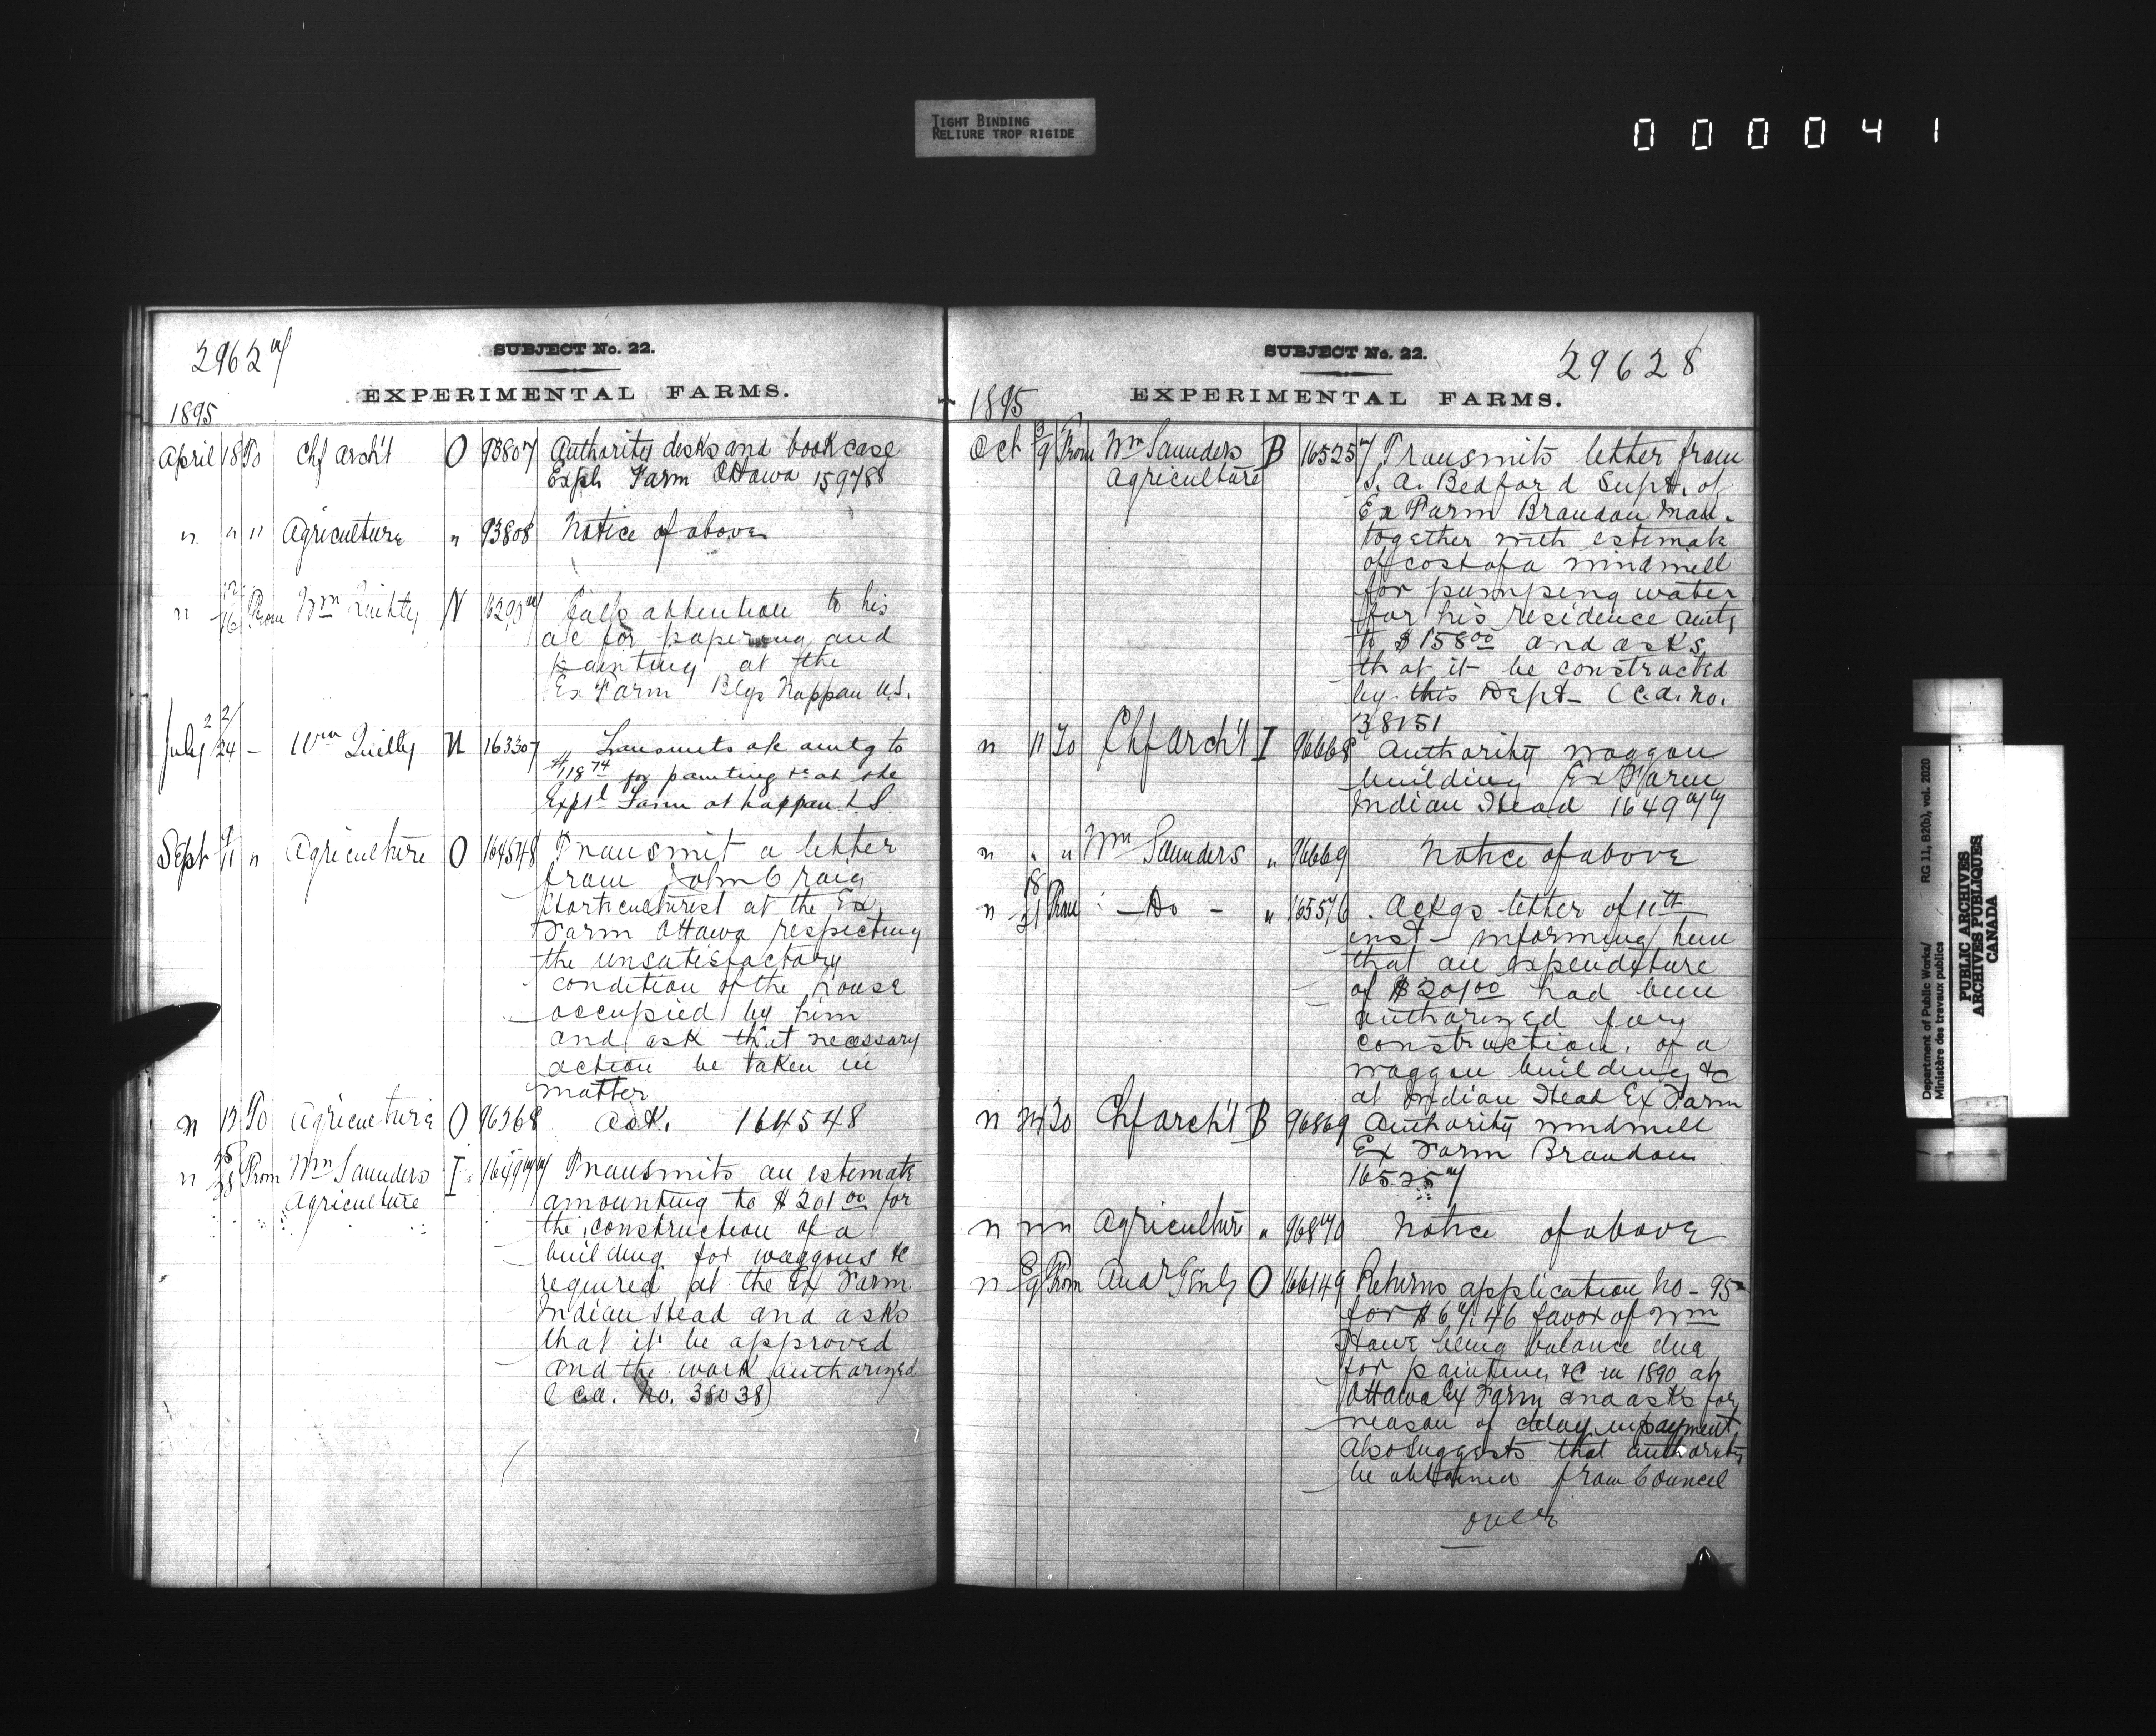 TIGHT BINDING
RELIURE TROP RIGIDE
000041
29627
SUBJECT No. 22.
EXPERIMENTAL FARMS.
1895
April 18 To Chf Archt O 93807 Authority desks and book case
Exptl Farm Ottawa 159788
" " " Agriculture " 93808 Notice of above
" 12/16 From Wm Quilty N Calls attention to his
a/c for papering and
painting at the
Ex Farm Blgs Nappan N.S.
July 22/24 - Wm Quilty N 163307 " Transmits a/c amtg to
$118 74 for painting &c at the
Exptl Farm at Nappan N.S.
Sept 9/11 " Agriculture O 164548 Transmit a letter
from John Craig
Horticulturist at the Ex
Farm Ottawa respecting
the unsatisfactory
condition of the house
occupied by him
and ask that necessary
action be taken in
matter
" 12 To Agriculture O 96368 Ack. 164548
" 25/28 From Wm Saunders I 164977 Transmits an estimate
Agriculture amounting to $201 00 for
the construction of a
building for waggons &c
required at the Ex Farm
Indian Head and asks
that it be approved
and the work authorized
(Ca. No. 38038)
SUBJECT No. 22.
29628
EXPERIMENTAL FARMS.
1895
Oct 3/9 From Wm Saunders B 165257 Transmits letter from
Agriculture S. A. Bedford Supt. of
Ex Farm Brandon Man.
together with estimate
of cost of a windmill
for pumping water
for his residence amtg
to $158 00 and asks
that it be constructed
by this Dept - (Ca. No.
38151
" 11 To Chf Archt I 96668 Authority waggon
building Ex Farm
Indian Head 164977
" " " Wm Saunders " 96669 Notice of above
" 18/21 From - Do - " 165576 Ackgs letter of 11th
inst - informing him
that an expenditure
of $201 00 had been
authorized for
construction of a
waggon building &c
at Indian Head Ex Farm
" 24 To Chf Archt B 96869 Authority windmill
Ex Farm Brandon
165257
" " " Agriculture " 96870 Notice of above
" 8/9 From Aud Genl O 166149 Returns application No - 95
for $67.46 favor of Wm
Howe being balance due
for painting &c in 1890 at
Ottawa Ex Farm and asks for
reason of delay in payment,
Also suggests that authority
be obtained from Council
over
Department of Public Works/ RG 11, B2(b), vol. 2020
Ministère des travaux publics
PUBLIC ARCHIVES
ARCHIVES PUBLIQUES
CANADA